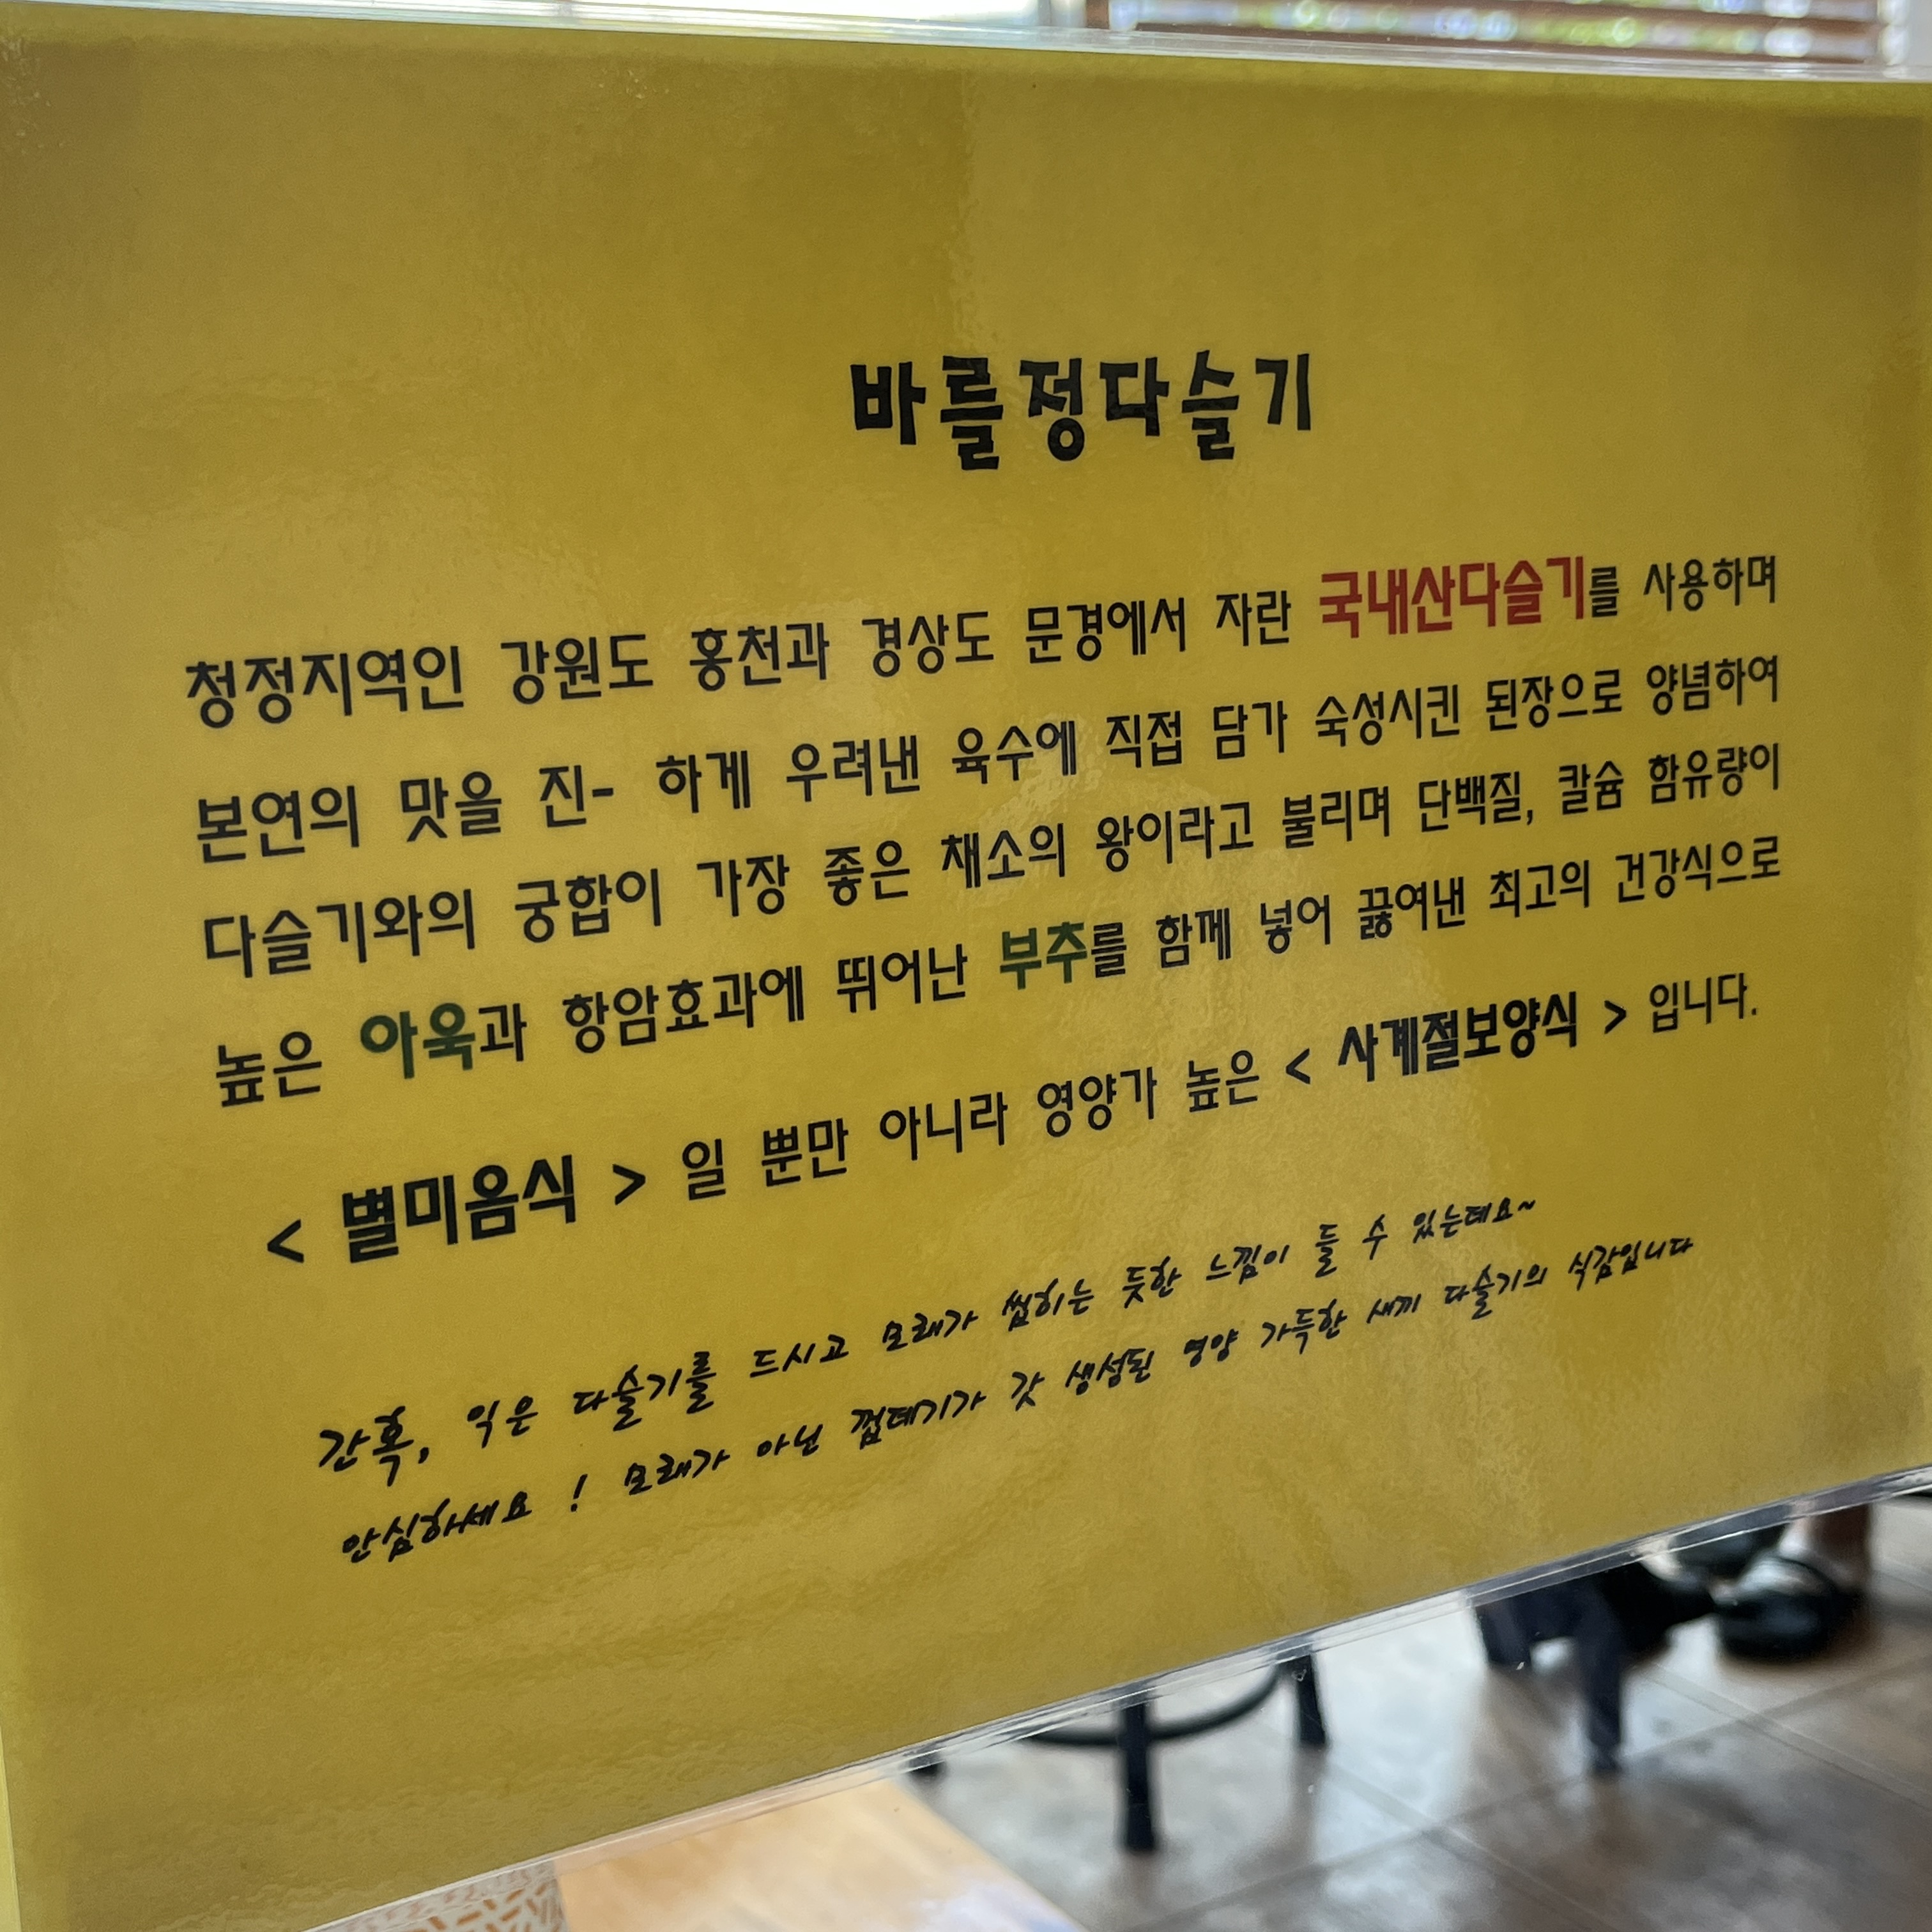 바를정다슬기
청정지역인 강원도 홍천과 경상도 문경에서 자란 국내산다슬기를 사용하며
본연의 맛을 진- 하게 우려낸 육수에 직접 담가 숙성시킨 된장으로 양념하여
다슬기와의 궁합이 가장 좋은 채소의 왕이라고 불리며 단백질, 칼슘 함유량이
높은 아욱과 항암효과에 뛰어난 부추를 함께 넣어 끓여낸 최고의 건강식으로
< 별미음식 > 일 뿐만 아니라 영양가 높은 < 사계절보양식 > 입니다.
간혹, 익은 다슬기를 드시고 모래가 씹히는 듯한 느낌이 들 수 있는데요~
안심하세요 ! 모래가 아닌 껍데기가 갓 생성된 영양 가득한 새끼 다슬기의 식감입니다